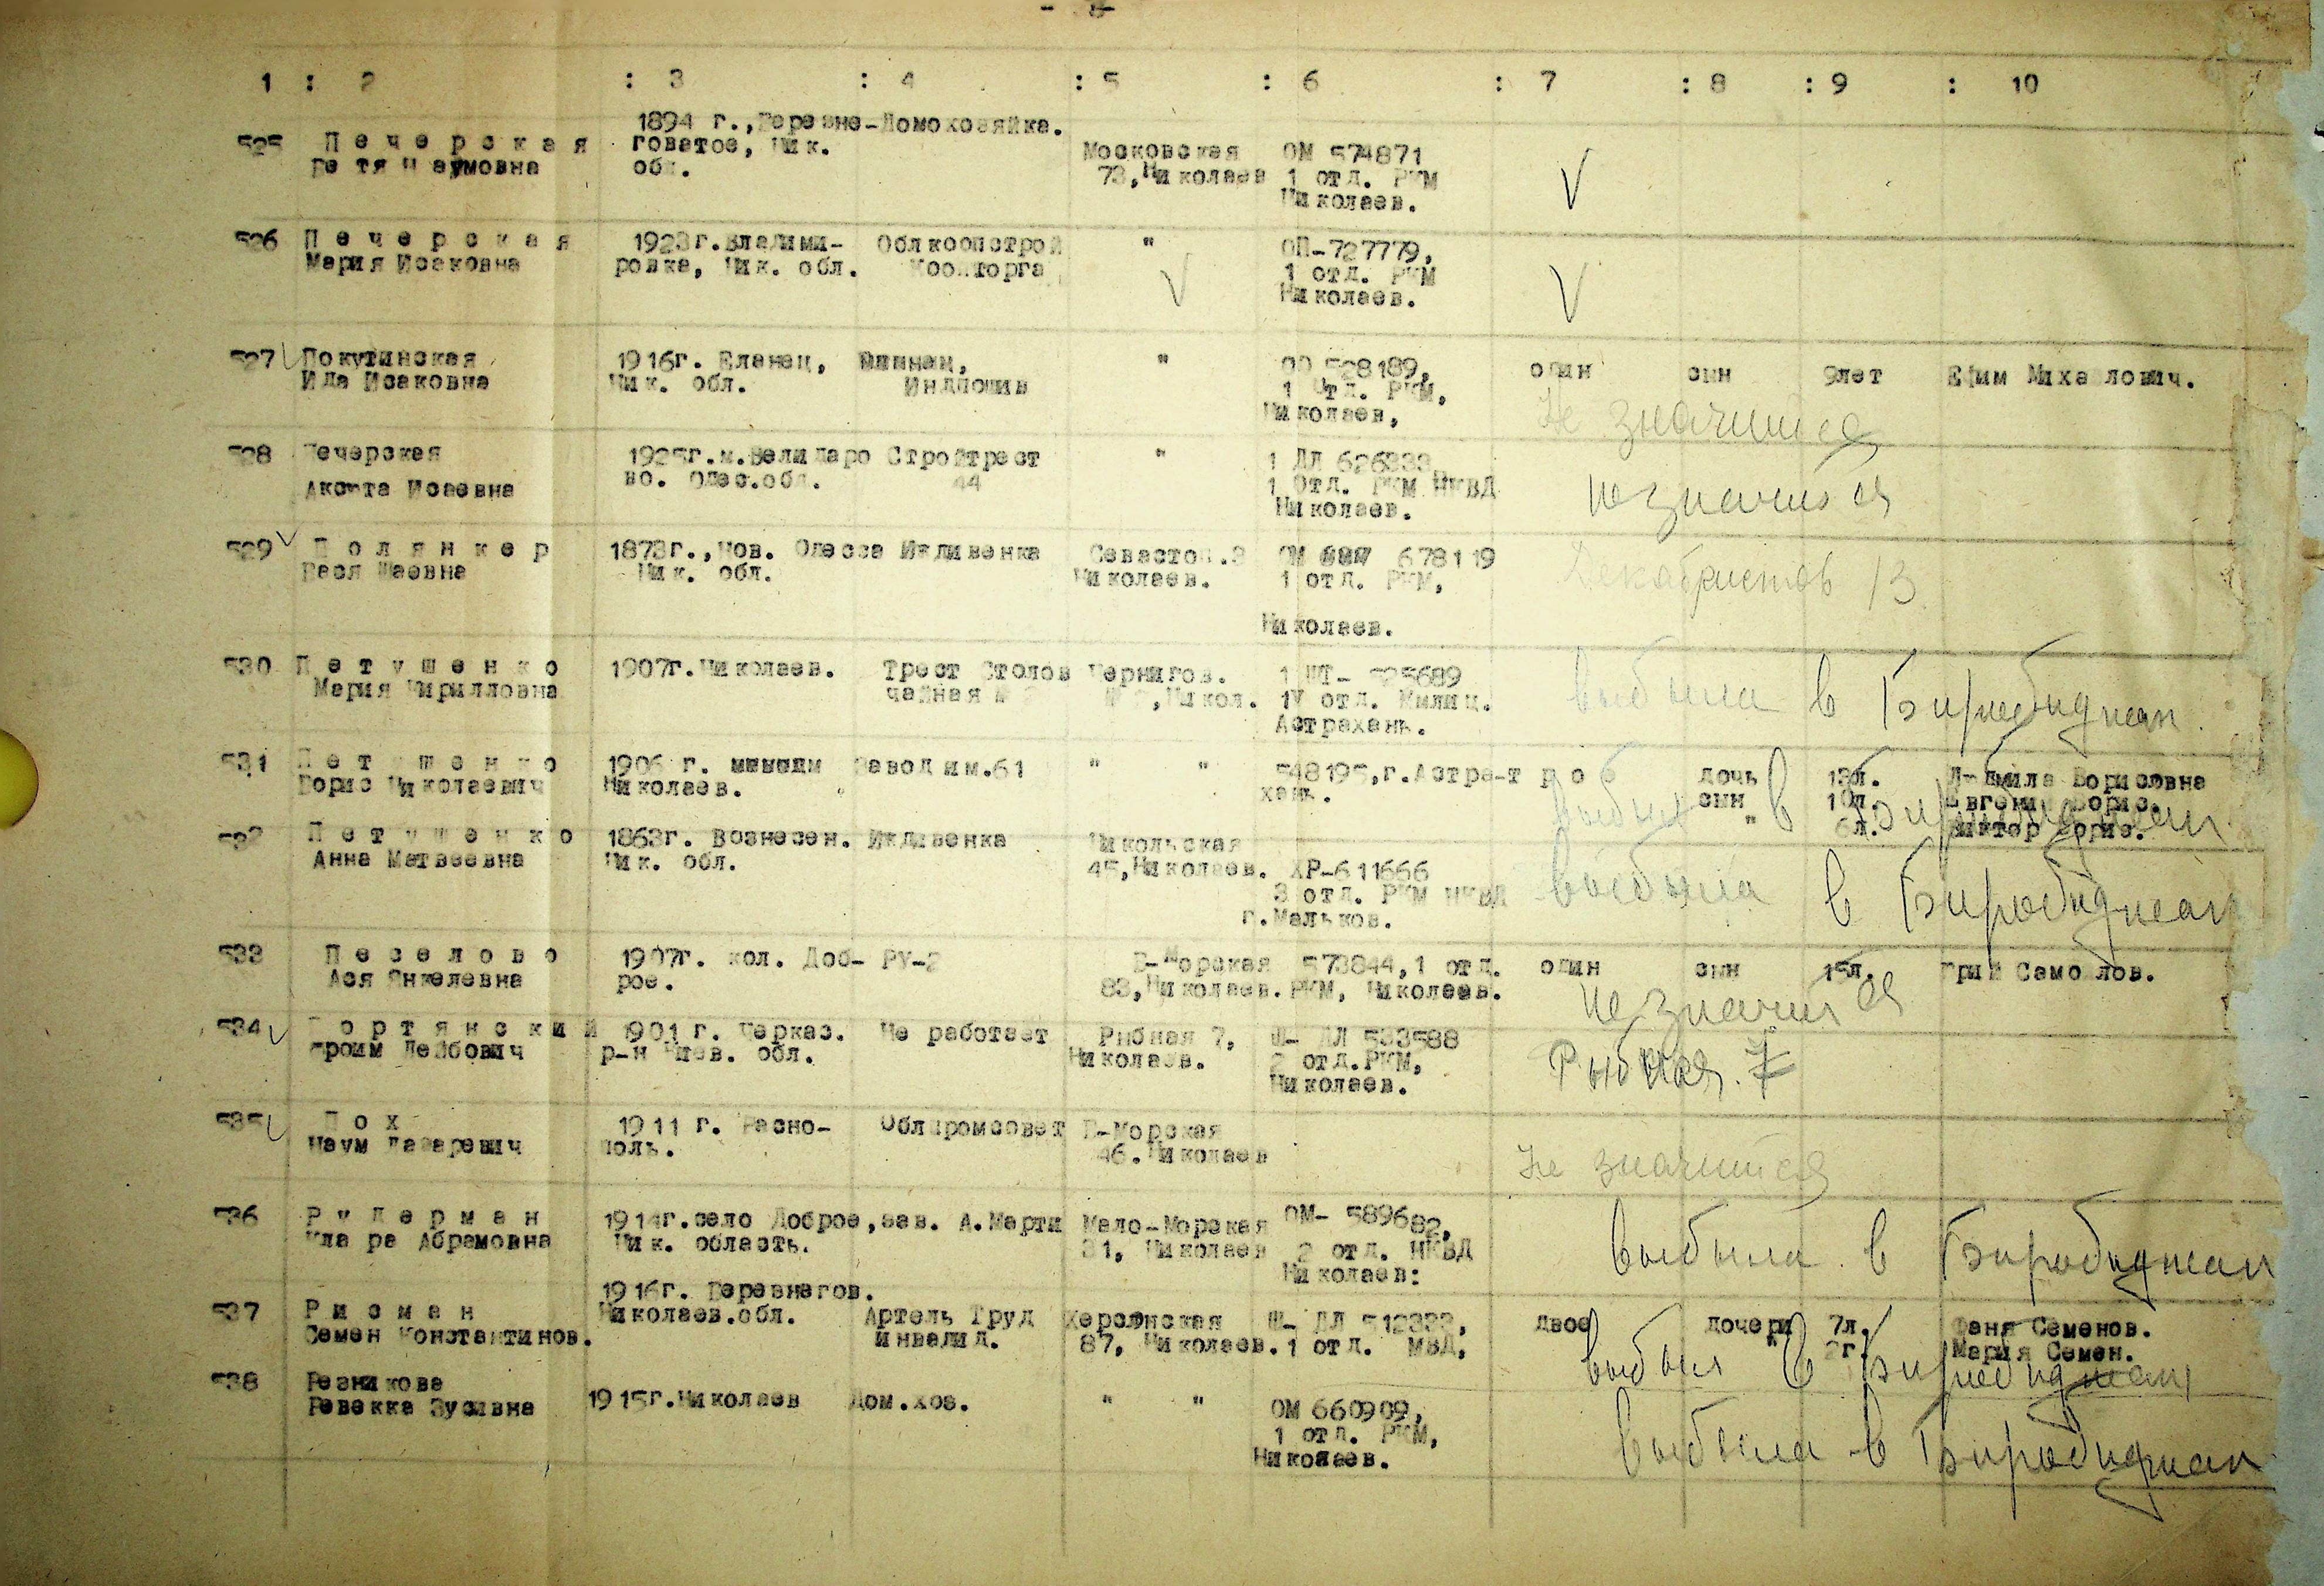 1 : 2 : 3 : 4 : 5 : 6 : 7 : 8 : 9 : 10
525 Печерская 1894 г., Березне- Домохозяйка.
Бетя Наумовна говатое, Ник. обл. Московская 73, Николаев ОМ 574871
1 отд. РКМ
Николаев.
526 Печерская 1923г. Владими- Облкоопстрой " ОП-727779,
Мария Исаковна ровка, Ник. обл. Коопторга 1 отд. РКМ
Николаев.
527 Покутинская 1916г. Еланец, " 528189, один сын 9лет Ефим Михайлович.
Ида Исаковна Ник. обл. Индпошив 1 Отд. РКМ,
Николаев,
Не значится
528 Печерская 1925г.м. Стройтрест " 1 ДЛ 626333
во. Одес.обл. 44 1 Отд. РКМ НКВД
Исаевна Николаев.
не значится
529 Полянкер 1873г., Нов. Одесса Иждивенка Севастоп.3 ОМ 678119
Бася Шаевна Ник. обл. Николаев. 1 отд. РКМ,
Николаев.
Декабристов 13
530 Петушенко 1907г. Николаев. Трест Столов Чернигов. 1 ШТ- 525689
Мария Кирилловна чайная № ,Никол. 1У отд. Милиц.
Астрахань.
выбыла в Биробиджан
531 Петушенко 1906 г. Завод им.61 " " 548195, г. Астра- трое дочь 13л. Людмила Борисовна
Борис Николаевич Николаев. хань. сын 10л. Евгений Борис.
" 6л. Виктор Борис.
выбыл в Биробиджан
532 Петушенко 1863г. Вознесен. Иждивенка Никольская
Анна Матвеевна Ник. обл. 45, Николаев. ХР-611666
3 отд. РКМ НКВД
г.Мальков.
выбыла в Биробиджан
533 Песелово 1907г. кол. Доб- РУ-2 Б-Морская 573844,1 отд. один сын 15л. Самойлов.
Ася Янкелевна рое. 83, Николаев. РКМ, Николаев.
не значится
534 Портянский 1901 г. Черкас. Не работает Рыбная 7, Ш- ДЛ 533588
Фроим Лейбович р-н Киев. обл. Николаев. 2 отд.РКМ,
Николаев.
Рыбная. 7
535 Пох 1911 г. Расно- Облпромсовет Б-Морская
Наум Лазаревич поль. 46. Николаев
не значится
536 Рудерман 1914г. село Доброе, зав. А.Марти Мало-Морская ОМ- 589682,
Клара Абрамовна Ник. область. 31, Николаев 2 отд. НКВД
Николаев:
выбыла в Биробиджан
1916г. Березнегов.
537 Рисман Николаев.обл. Артель Труд Херсонская Ш- ДЛ 512333, двое дочери 7л. Фаня Семенов.
Семен Константинов. инвалид. 87, Николаев. 1 отд. МВД, " 2г. Мария Семен.
выбыл в Биробиджан
538 Резникова
Ревекка Зусивна 1915г. Николаев Дом.хоз. " " ОМ 660909,
1 отд. РКМ,
Николаев.
выбыла в Биробиджан